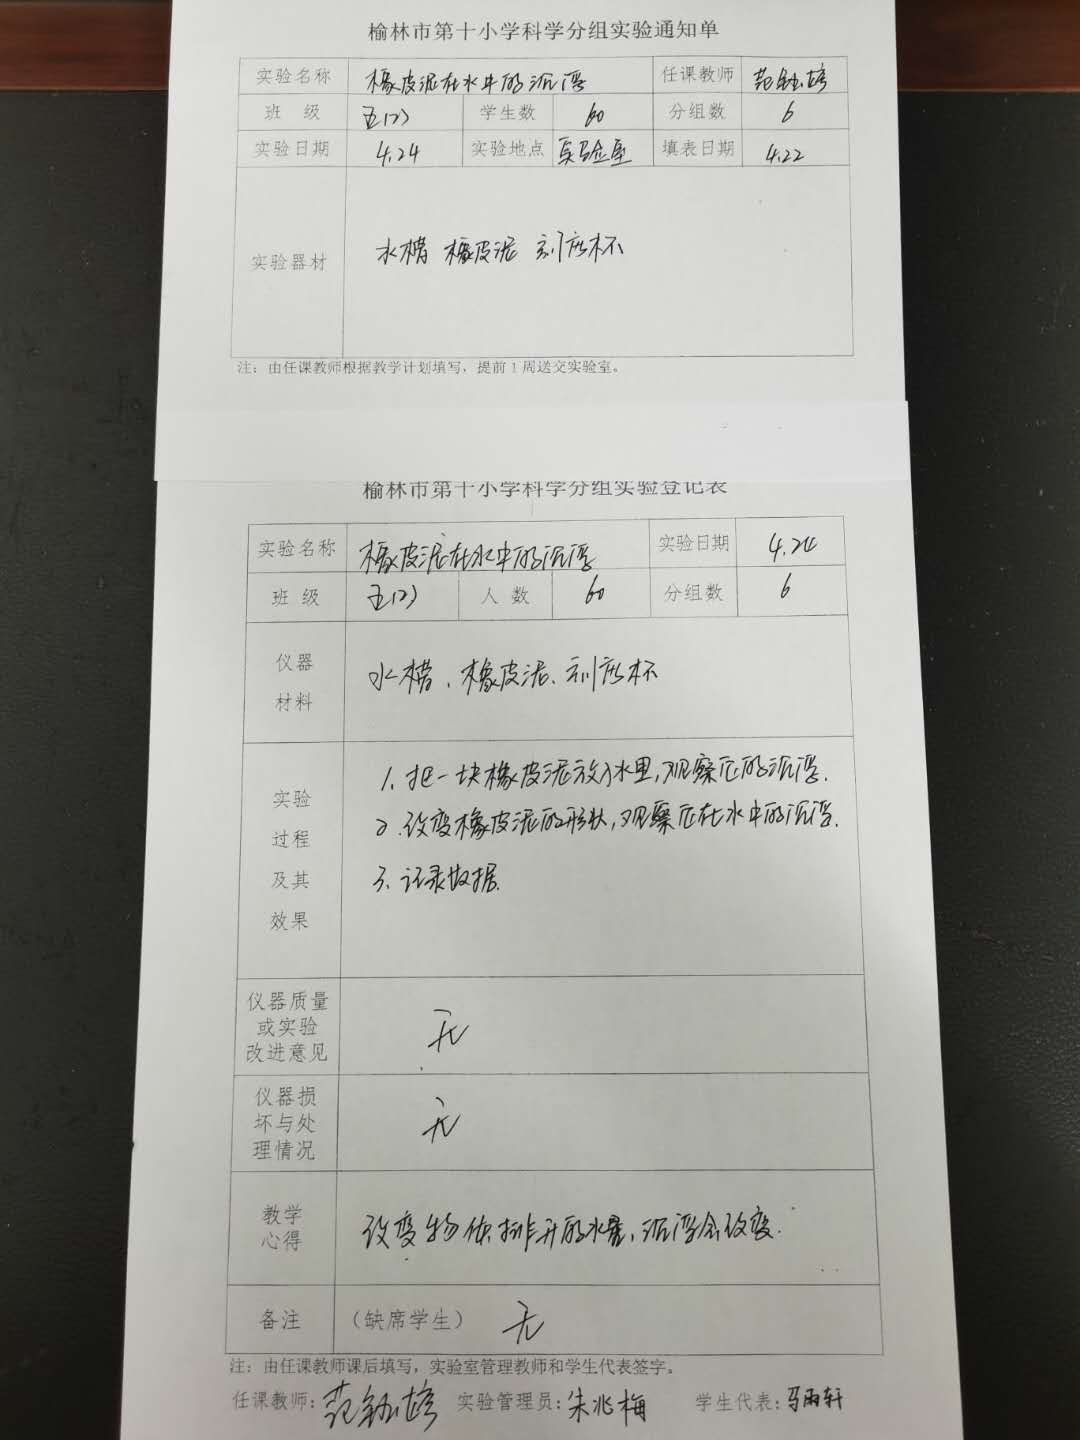 榆林市第十小学科学分组实验通知单
实验名称 橡皮泥在水中的沉浮 任课教师
班 级 五(2) 学生数 60 分组数 6
实验日期 4.24 实验地点 实验室 填表日期 4.22
实验器材 水槽 橡皮泥 刻度杯
注：由任课教师根据教学计划填写，提前1周送交实验室。
榆林市第十小学科学分组实验登记表
实验名称 橡皮泥在水中的沉浮 实验日期 4.24
班 级 五(2) 人 数 60 分组数 6
仪器
材料
水槽、橡皮泥、刻度杯
实验
过程
及其
效果
1、把一块橡皮泥放入水里，观察它的沉浮.
2、改变橡皮泥的形状，观察它在水中的沉浮.
3、记录数据.
仪器质量
或实验
改进意见
无
仪器损
坏与处
理情况
无
教学
心得
改变物体排开的水量，沉浮会改变.
备注 （缺席学生） 无
注：由任课教师课后填写，实验室管理教师和学生代表签字。
任课教师： 实验管理员：朱兆梅 学生代表：马雨轩